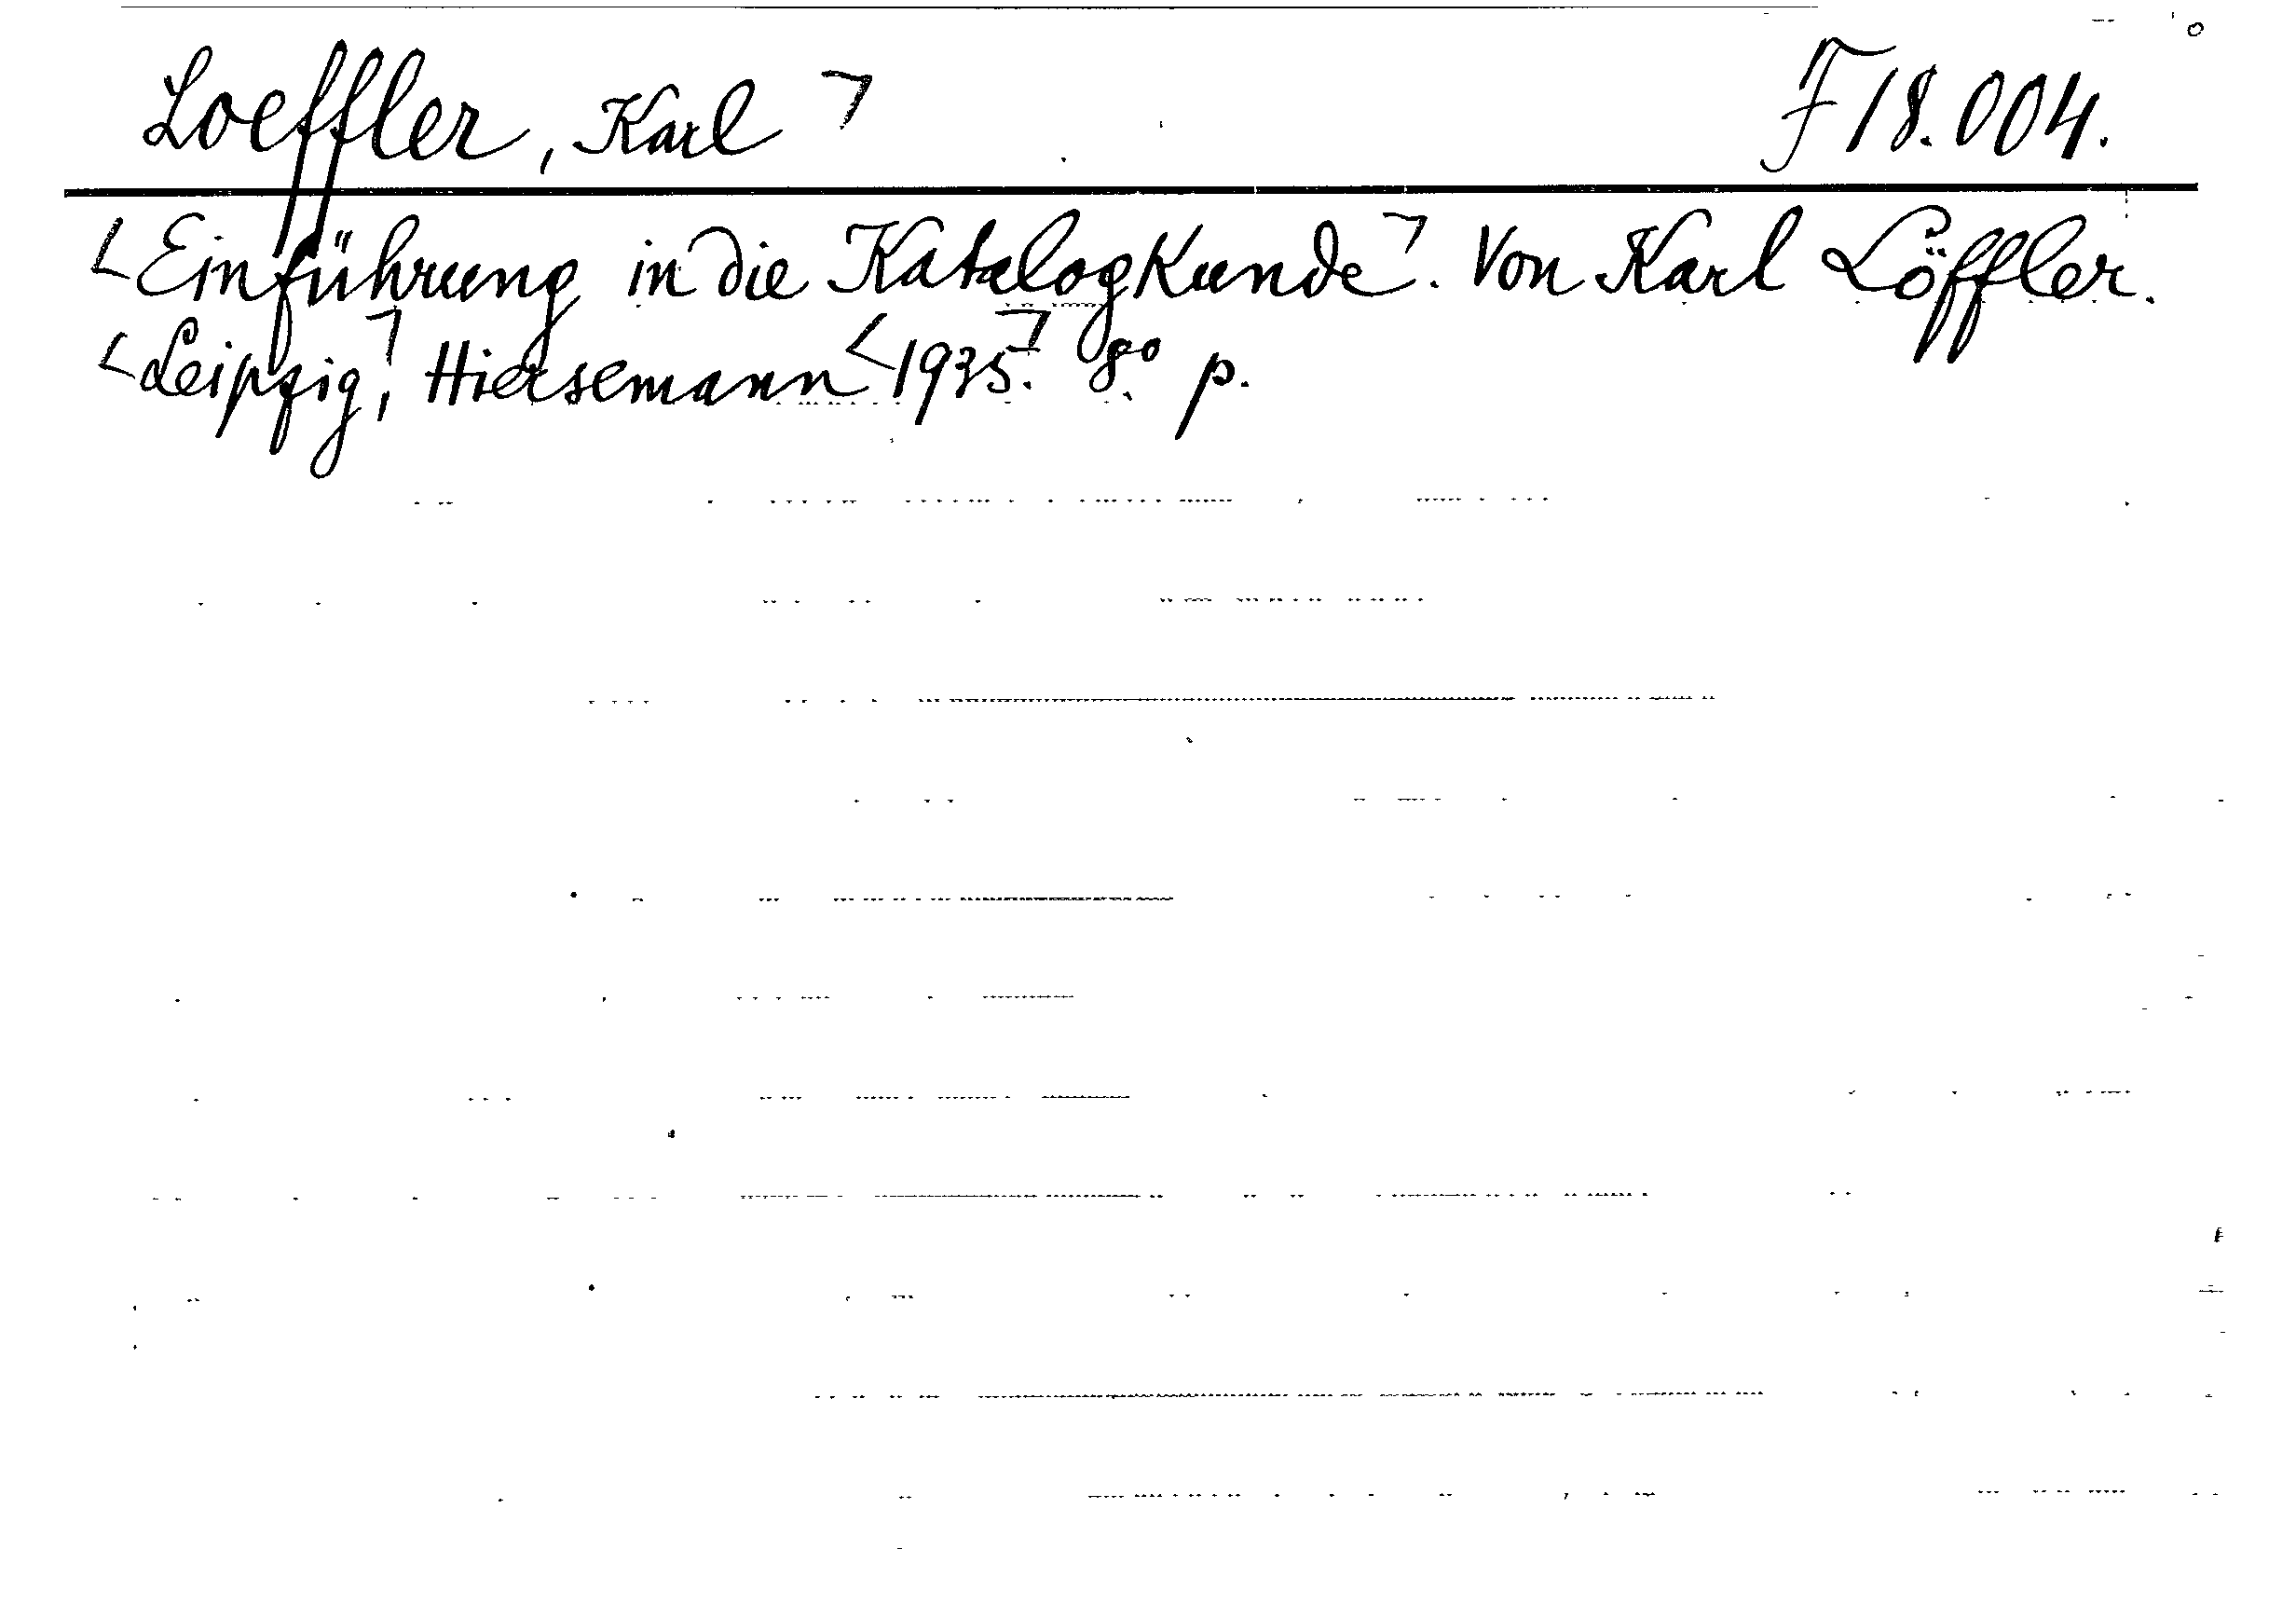 Loeffler, Karl ⌝ F 18.004.
⌞Einführung in die Katalogkunde⌝. Von Karl Löffler.
⌞Leipzig,⌝ Hiersemann ⌞1935.⌝ 8° p.